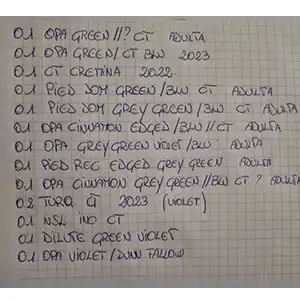 0.1 OPA GREEN//? CT ADULTA
0.1 OPA GREEN/CT BLU 2023
0.1 CT CREMINA 2022
0.1 PIED DOM GREEN/BLU CT ADULTA
0.1 PIED DOM GREYGREEN/BLU CT ADULTA
0.1 OPA CINNAMON EDGED/BLU//CT ADULTA
0.1 OPA GREYGREEN VIOLET/BLU ADULTA
0.1 PIED REC EDGED GREY GREEN ADULTA
0.1 OPA CINNAMON GREYGREEN//BLU CT? ADULTA
0.2 TURQ CT 2023 (VIOLET)
0.1 NSL INO CT
0.1 DILUTE GREEN VIOLET
0.1 OPA VIOLET/DUNN FALLOW